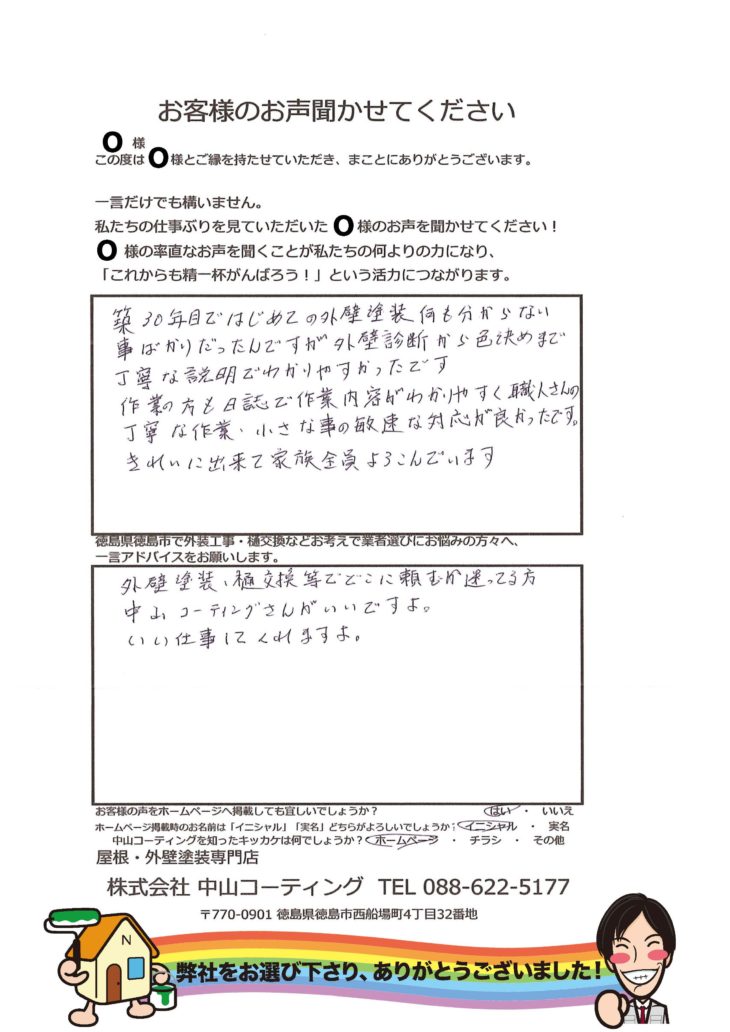 お客様のお声聞かせてください
O 様
この度は O 様とご縁を持たせていただき、まことにありがとうございます。
一言だけでも構いません。
私たちの仕事ぶりを見ていただいた O 様のお声を聞かせてください！
O 様の率直なお声を聞くことが私たちの何よりの力になり、
「これからも精一杯がんばろう！」という活力につながります。
築30年目ではじめての外壁塗装何も分からない
事ばかりだったんですが外壁診断から色決めまで
丁寧な説明でわかりやすかったです
作業の方も日誌で作業内容がわかりやすく職人さんの
丁寧な作業、小さな事の敏速な対応が良かったです。
きれいに出来て家族全員よろこんでいます
徳島県徳島市で外装工事・樋交換などお考えで業者選びにお悩みの方々へ、
一言アドバイスをお願いします。
外壁塗装、樋交換等でどこに頼むか迷ってる方
中山コーティングさんがいいですよ。
いい仕事してくれますよ。
お客様の声をホームページへ掲載しても宜しいでしょうか？ はい ・ いいえ
ホームページ掲載時のお名前は「イニシャル」「実名」どちらがよろしいでしょうか？ イニシャル ・ 実名
中山コーティングを知ったキッカケは何でしょうか？ ホームページ ・ チラシ ・ その他
屋根・外壁塗装専門店
株式会社 中山コーティング TEL 088-622-5177
〒770-0901 徳島県徳島市西船場町4丁目32番地
N
弊社をお選び下さり、ありがとうございました！